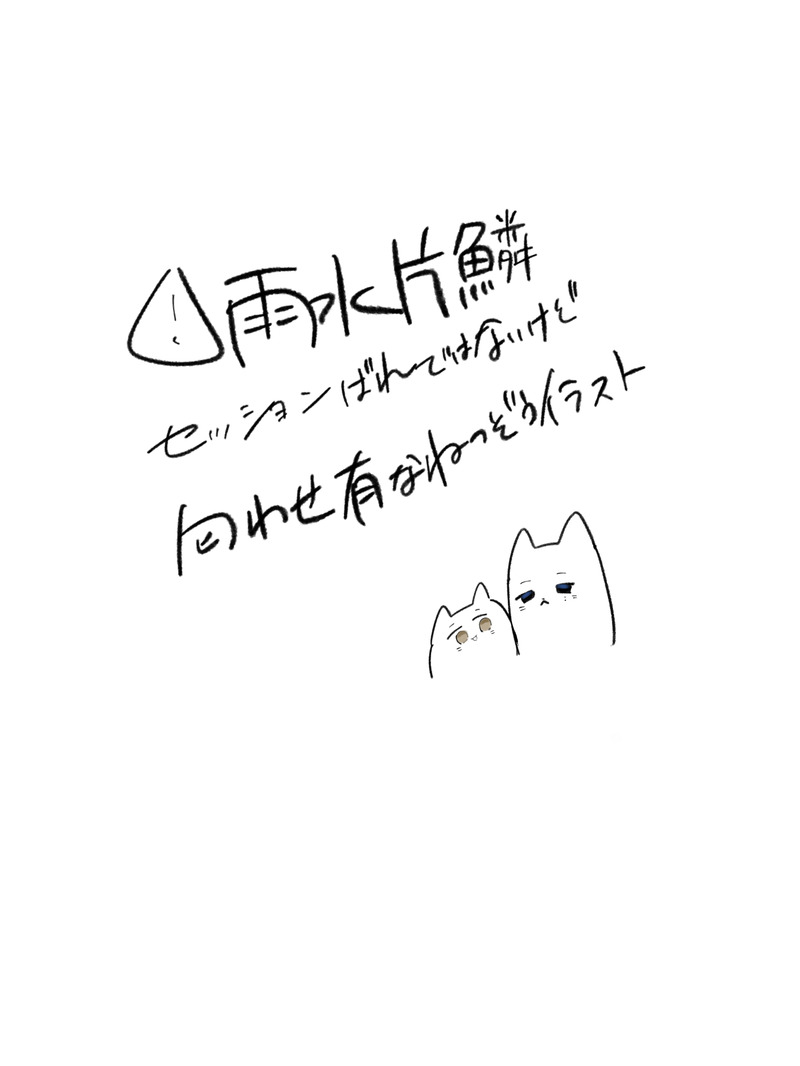 ⚠雨水片鱗
セッションばれではないけど
匂わせ有なねつぞうイラスト